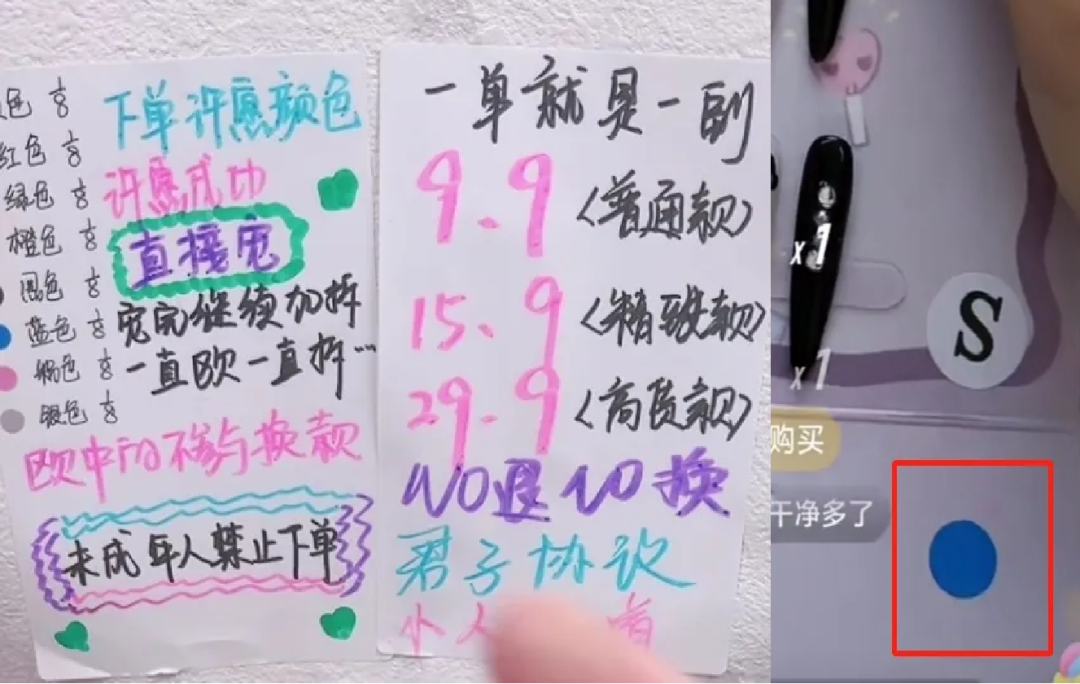 色
红色
绿色
橙色
黑色
蓝色
粉色
银色
下单许愿颜色
许愿成功
直接宠
宠完继续加拆
一直欧一直拆…
欧中的不参与换款
未成年人禁止下单
一单就是一副
9.9〈普通款〉
15.9〈精致款〉
29.9〈高货款〉
NO退NO换
君子协议
小人
x1
x1
S
购买
干净多了